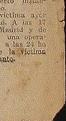 víctima ayer
A las 17
Madrid y de
una opera-
a las 24 ho
la víctima